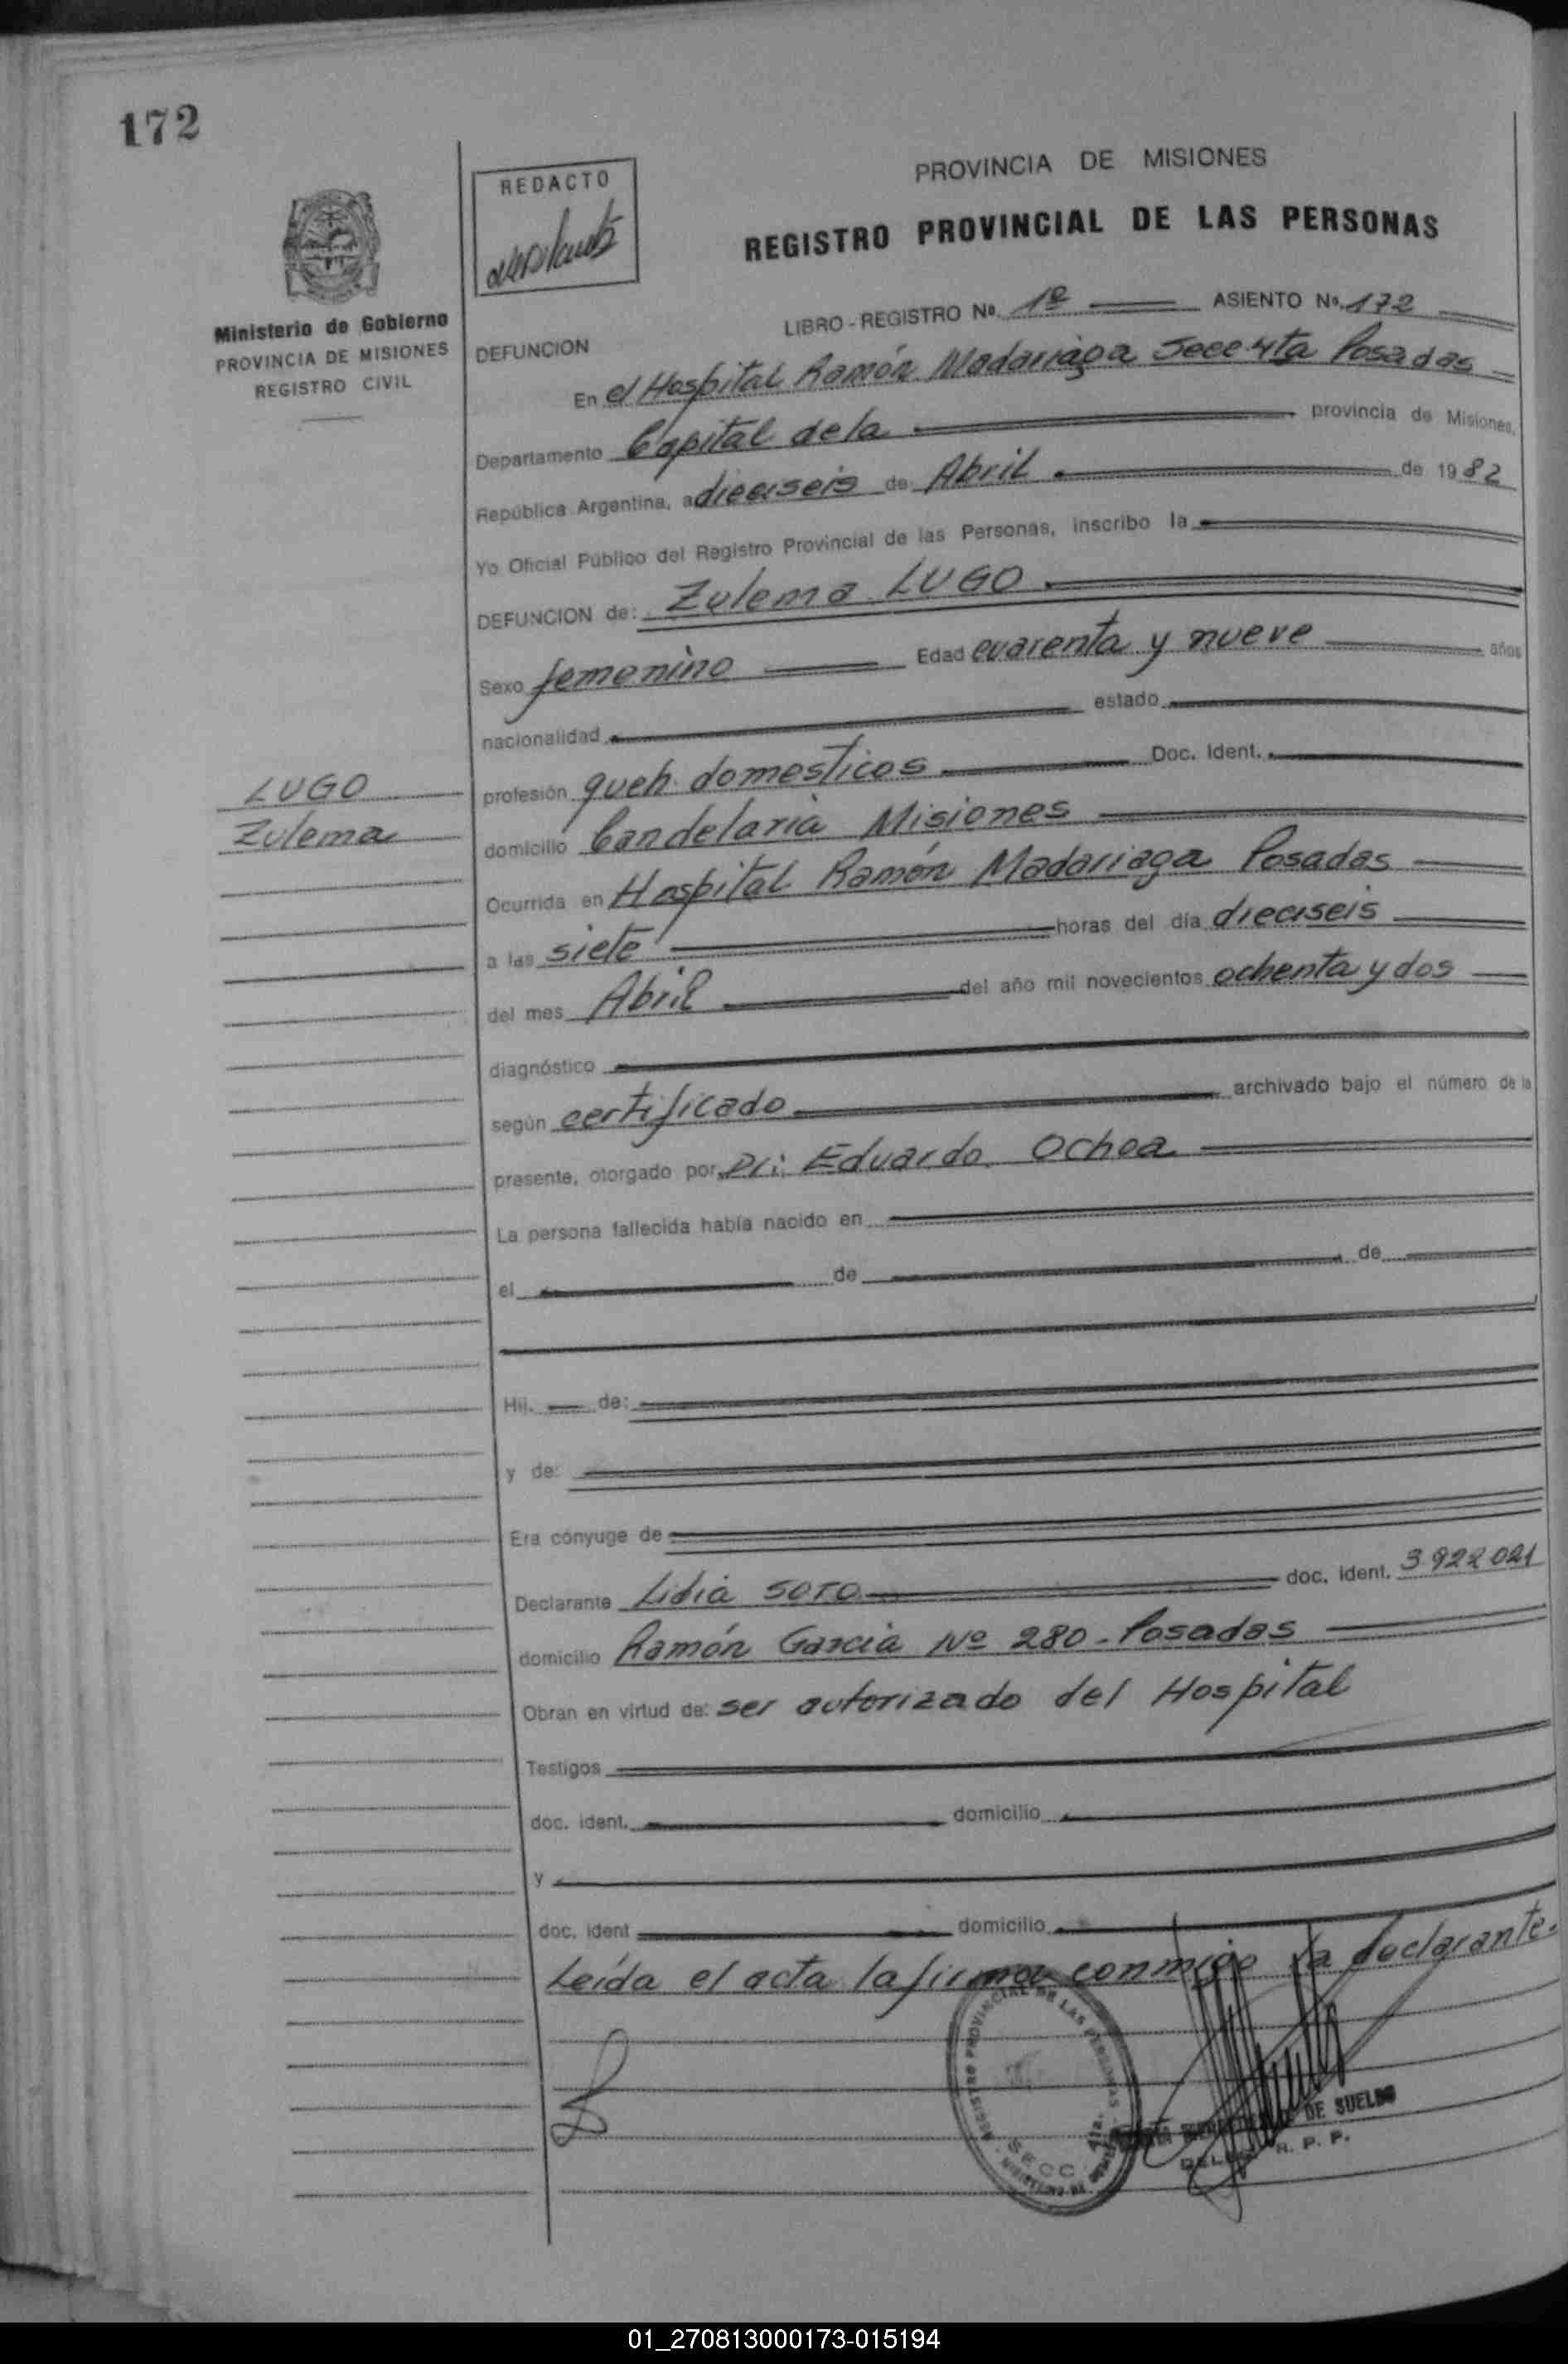 172
REDACTO
PROVINCIA DE MISIONES
REGISTRO PROVINCIAL DE LAS PERSONAS
Ministerio de Gobierno
PROVINCIA DE MISIONES
REGISTRO CIVIL
LIBRO - REGISTRO No. 1º ASIENTO No. 172
DEFUNCION
En el Hospital Ramón Madariaga Secc 4ta Posadas
Departamento Capital de la provincia de Misiones,
República Argentina, a dieciseis de Abril de 1982
Yo Oficial Público del Registro Provincial de las Personas, inscribo la
DEFUNCION de: Zulema LUGO
Sexo femenino Edad cuarenta y nueve años
nacionalidad estado
LUGO
Zulema
profesión queh. domesticos Doc. Ident.
domicilio Candelaria Misiones
Ocurrida en Hospital Ramón Madariaga Posadas
a las siete horas del día dieciseis
del mes Abril del año mil novecientos ochenta y dos
diagnóstico
según certificado archivado bajo el número de la
presente, otorgado por Dr: Eduardo Ochoa
La persona fallecida había nacido en
el de de
Hij. de:
y de:
Era cónyuge de
Declarante Lidia SOTO doc. ident. 3.922.021
domicilio Ramón Garcia Nº 280 - Posadas
Obran en virtud de: ser autorizado del Hospital
Testigos
doc. ident. domicilio
y
doc. ident domicilio
Leída el acta la firma conmigo la declarante.
REGISTRO PROVINCIAL DE LAS PERSONAS
SECC. 4ta.
DE SUELDO
R. P. P.
01_270813000173-015194